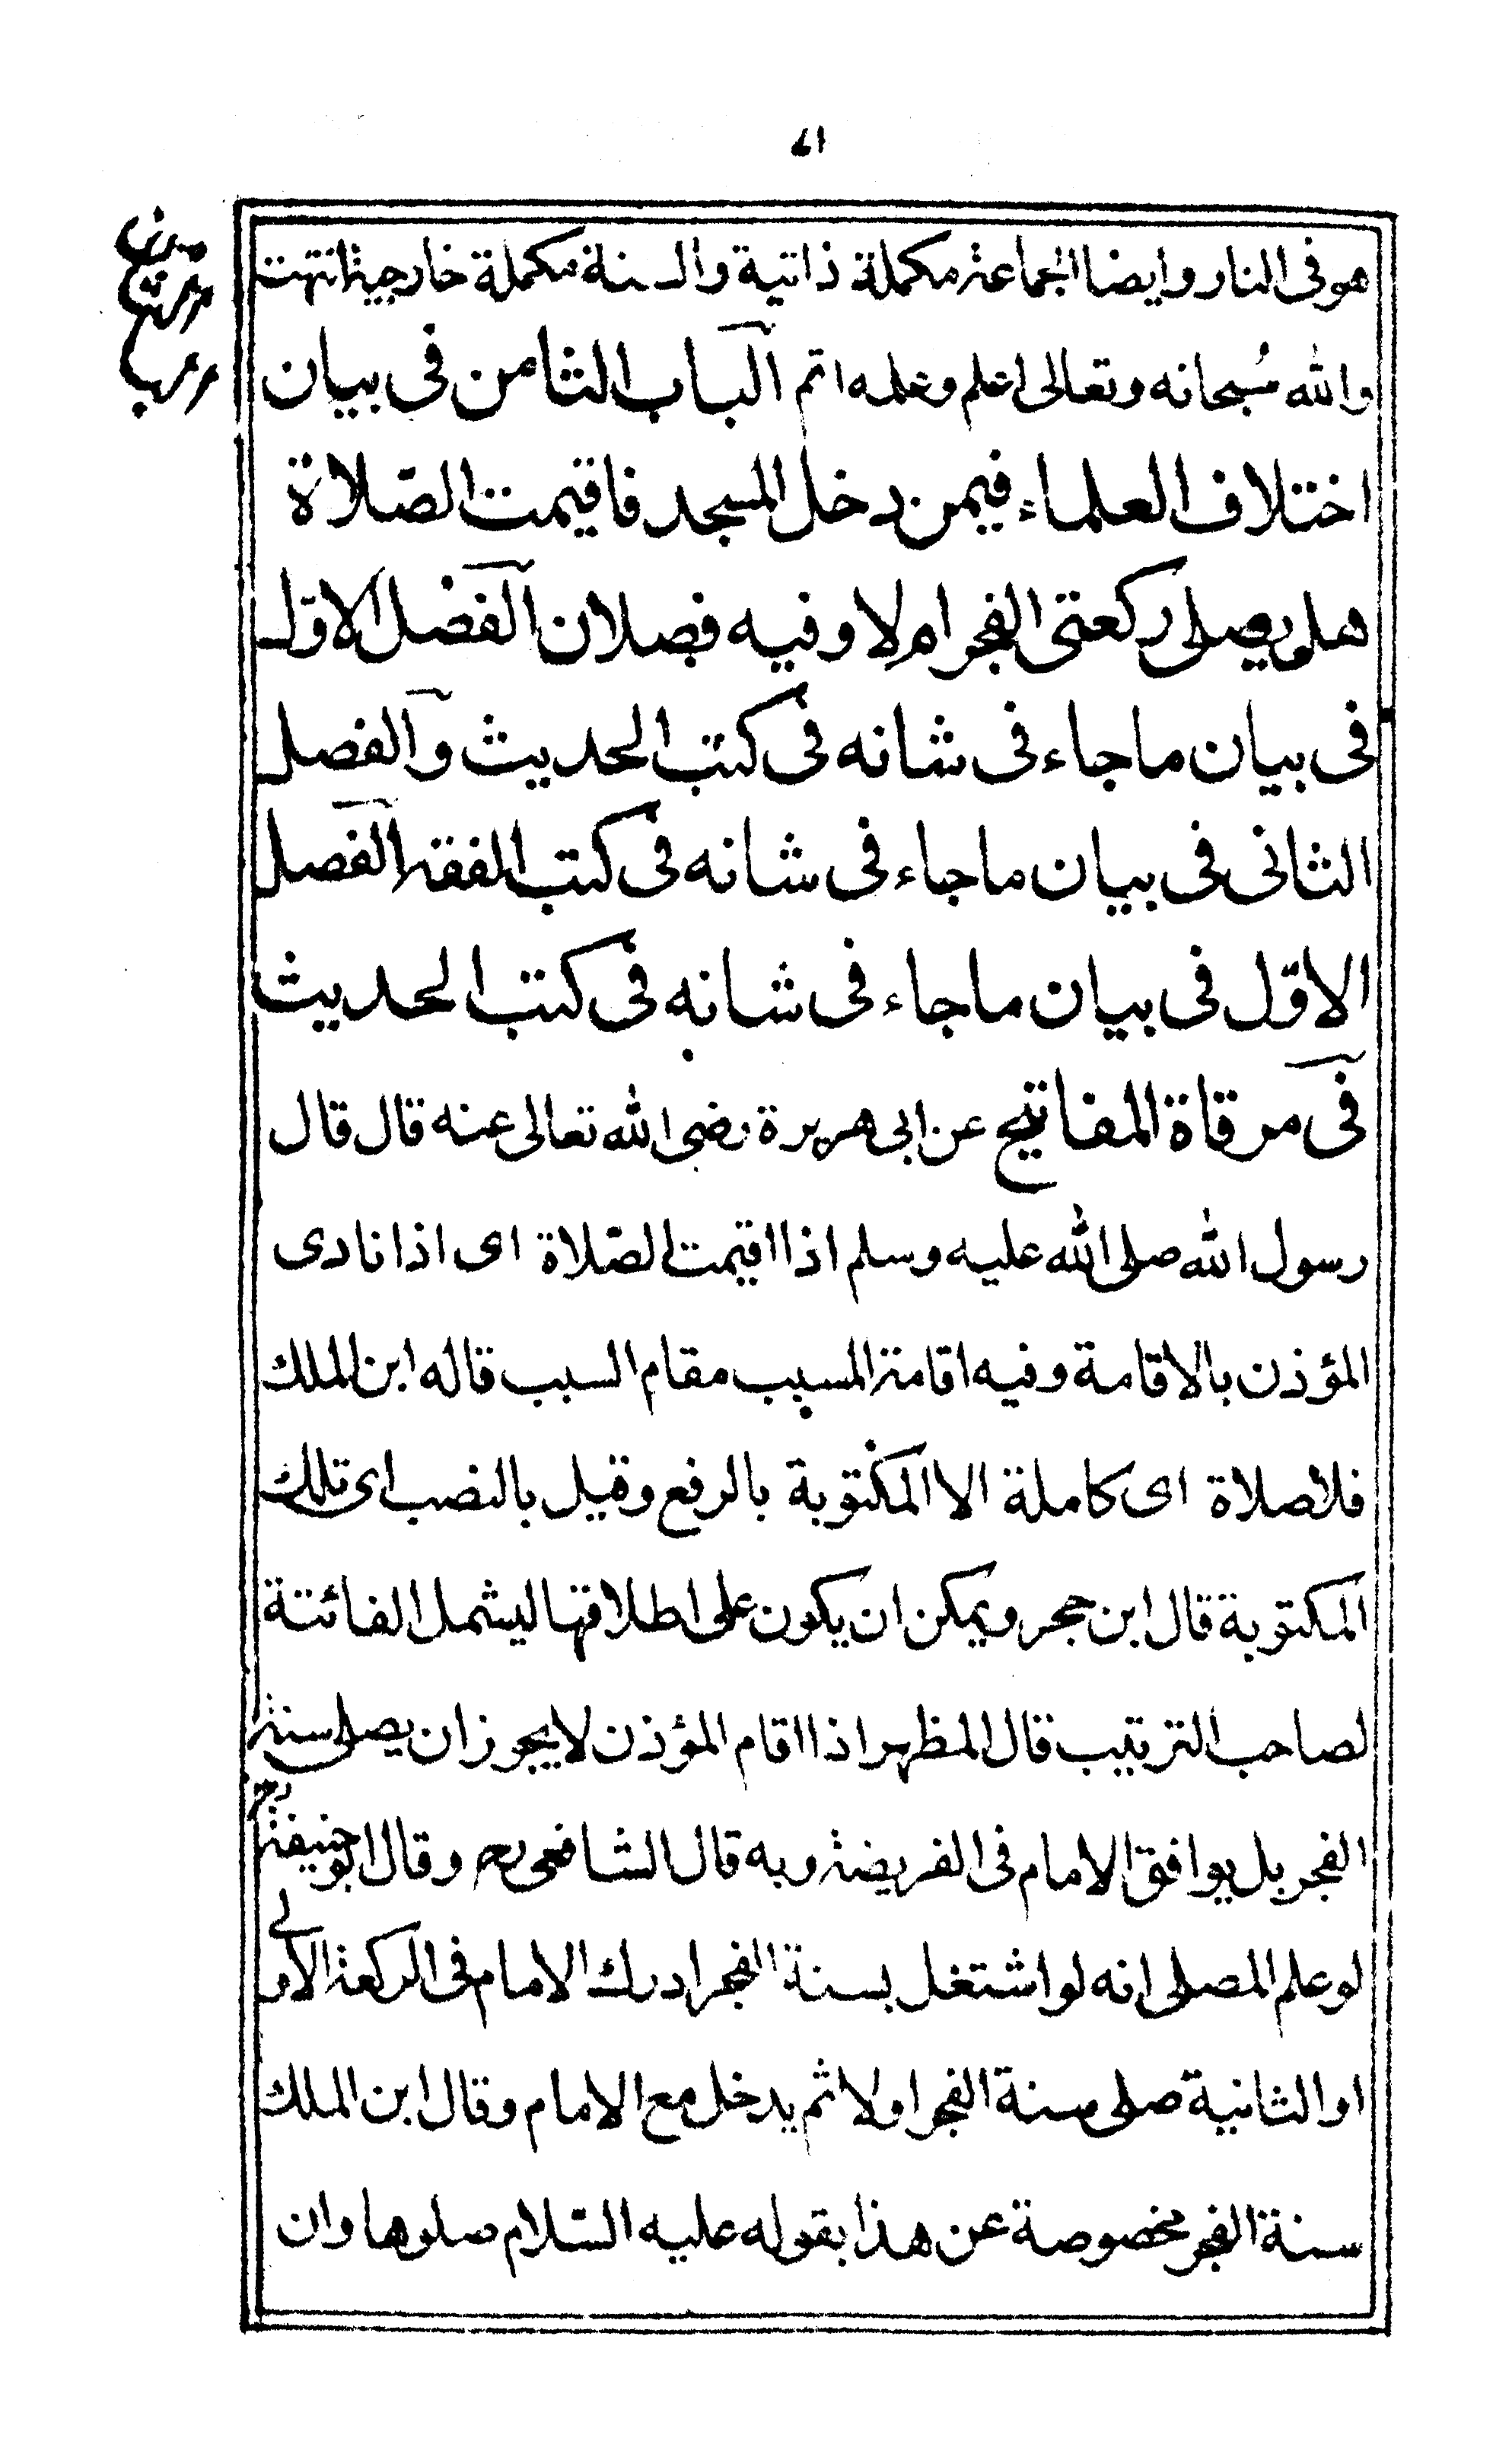 هو فى النار وايضا الجماعة مكملة ذاتية والسنة مكملة خارجية انتهت
والله سُبحانه وتعالى اعلم وعلمه اتم الباب الثامن فى بيان
اختلاف العلماء فيمن دخل المسجد فاقيمت الصّلاة
هل يصلى ركعتى الفجر ام لا وفيه فصلان الفصل الاوّل
فى بيان ماجاء فى شانه فى كتب الحديث والفصل
الثانى فى بيان ماجاء فى شانه فى كتب الفقه الفصل
الاوّل فى بيان ماجاء فى شانه فى كتب الحديث
فى مرقاة المفاتيح عن ابى هريرة رضى الله تعالى عنه قال قال
رسول الله صلى الله عليه وسلم اذا اقيمت الصّلاة اى اذا نادى
المؤذن بالاقامة وفيه اقامة المسبب مقام السبب قاله ابن الملك
فلا صلاة اى كاملة الا المكتوبة بالرفع وقيل بالنصب اى تلك
المكتوبة قال ابن حجر ويمكن ان يكون على اطلاقها ليشمل الفائتة
لصاحب الترتيب قال المظهر اذا اقام المؤذن لا يجوز ان يصلى سنة
الفجر بل يوافق الامام فى الفريضة وبه قال الشافعى رح وقال ابو حنيفة رح
لو علم المصلى انه لو اشتغل بسنة الفجر ادرك الامام فى الركعة الاولى
او الثانية صلى سنة الفجر اولا ثم يدخل مع الامام وقال ابن الملك
سنة الفجر مخصوصة عن هذا بقوله عليه السّلام صلوها وان